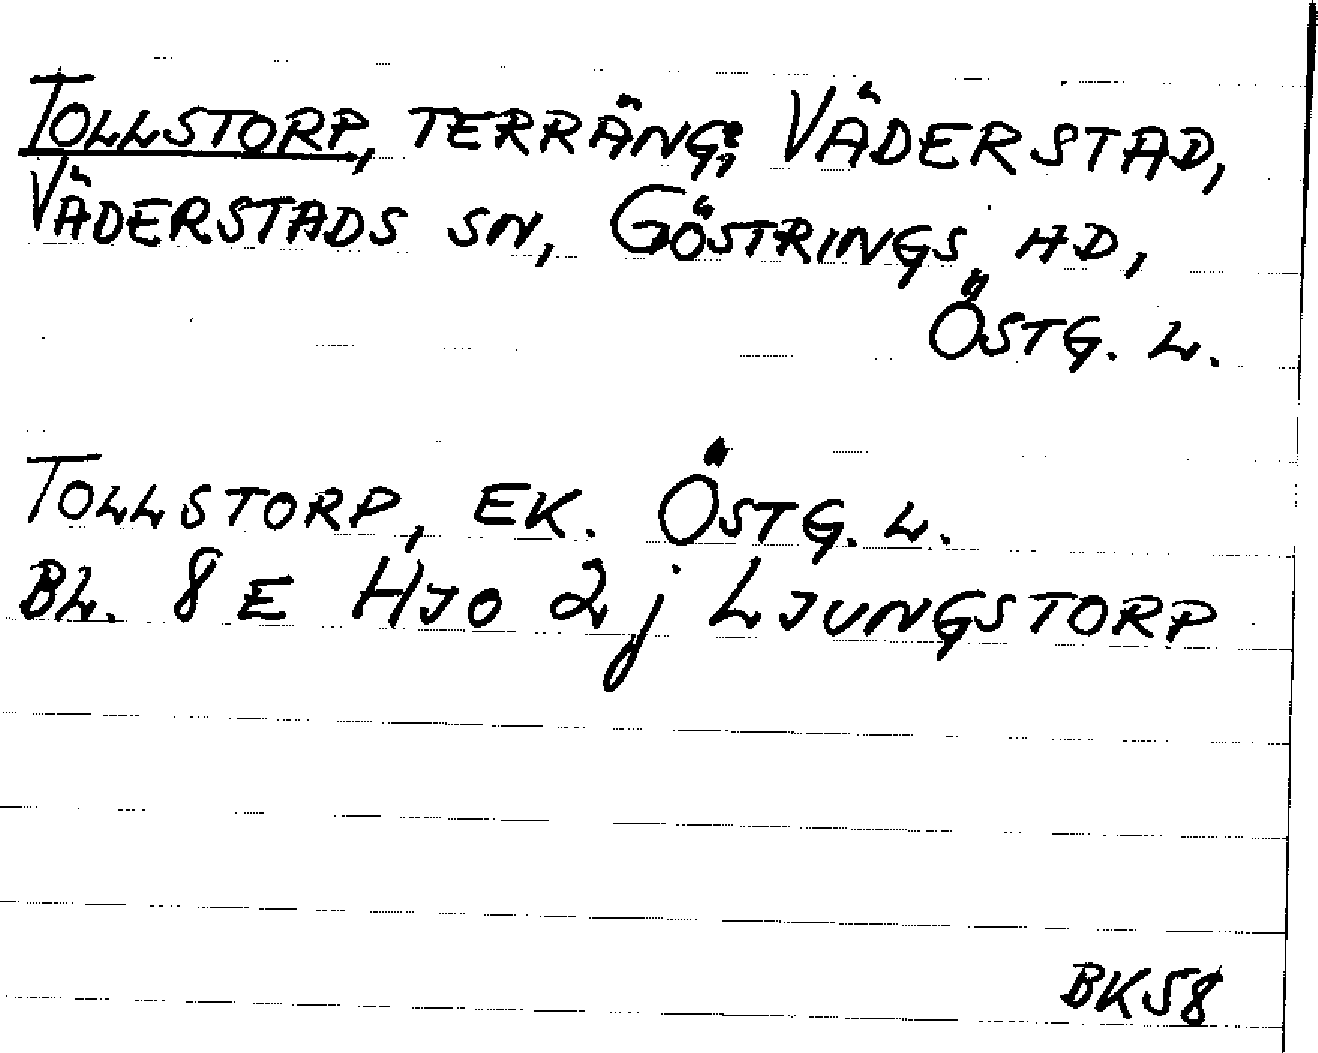 TOLLSTORP, TERRÄNG; VÄDERSTAD,
VÄDERSTADS SN, GÖSTRINGS HD,
ÖSTG. L.
TOLLSTORP, EK. ÖSTG. L.
BL. 8 E HJO 2j LJUNGSTORP
BK58